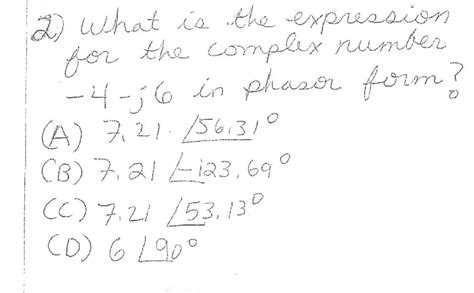 2) What is the expression
for the complex number
-4-j6 in phasor form?
(A) 7.21 ∠56.31°
(B) 7.21 ∠-123.69°
(C) 7.21 ∠53.13°
(D) 6 ∠90°